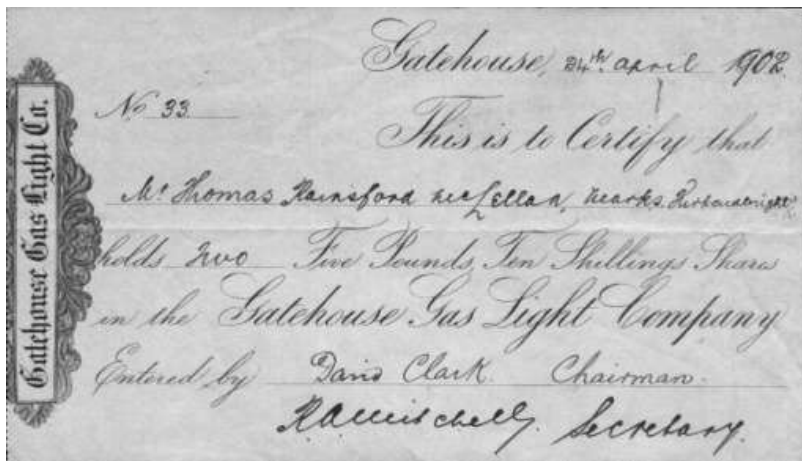 Gatehouse Gas Light Co.
Gatehouse, 24th. april 1902.
No 33
This is to Certify that
Mr Thomas Rainsford McLellan, Kirkcudbright
holds Two Five Pounds, Ten Shillings Shares
in the Gatehouse Gas Light Company
Entered by David Clark. Chairman.
R A Mitchell. Secretary.